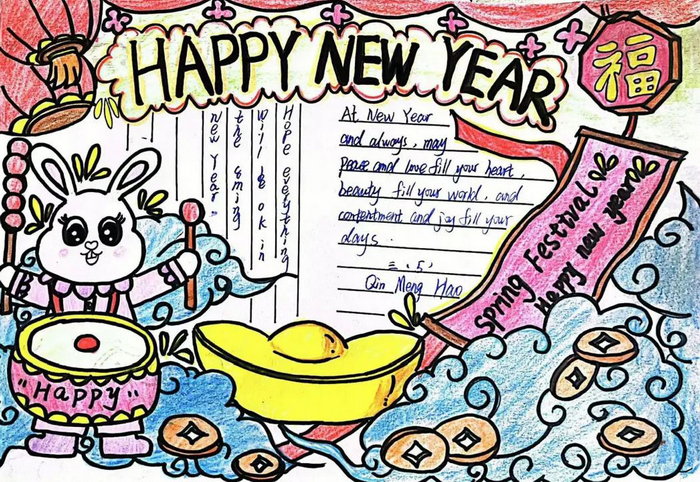 HAPPY NEW YEAR
福
Hope everything
will be ok in
the
New Year.
At New Year
and always, may
peace and love fill your heart,
beauty fill your world, and
contentment and joy fill your
days.
三.5)
Qin Meng Hao
Spring Festival
Happy new year
"Happy"